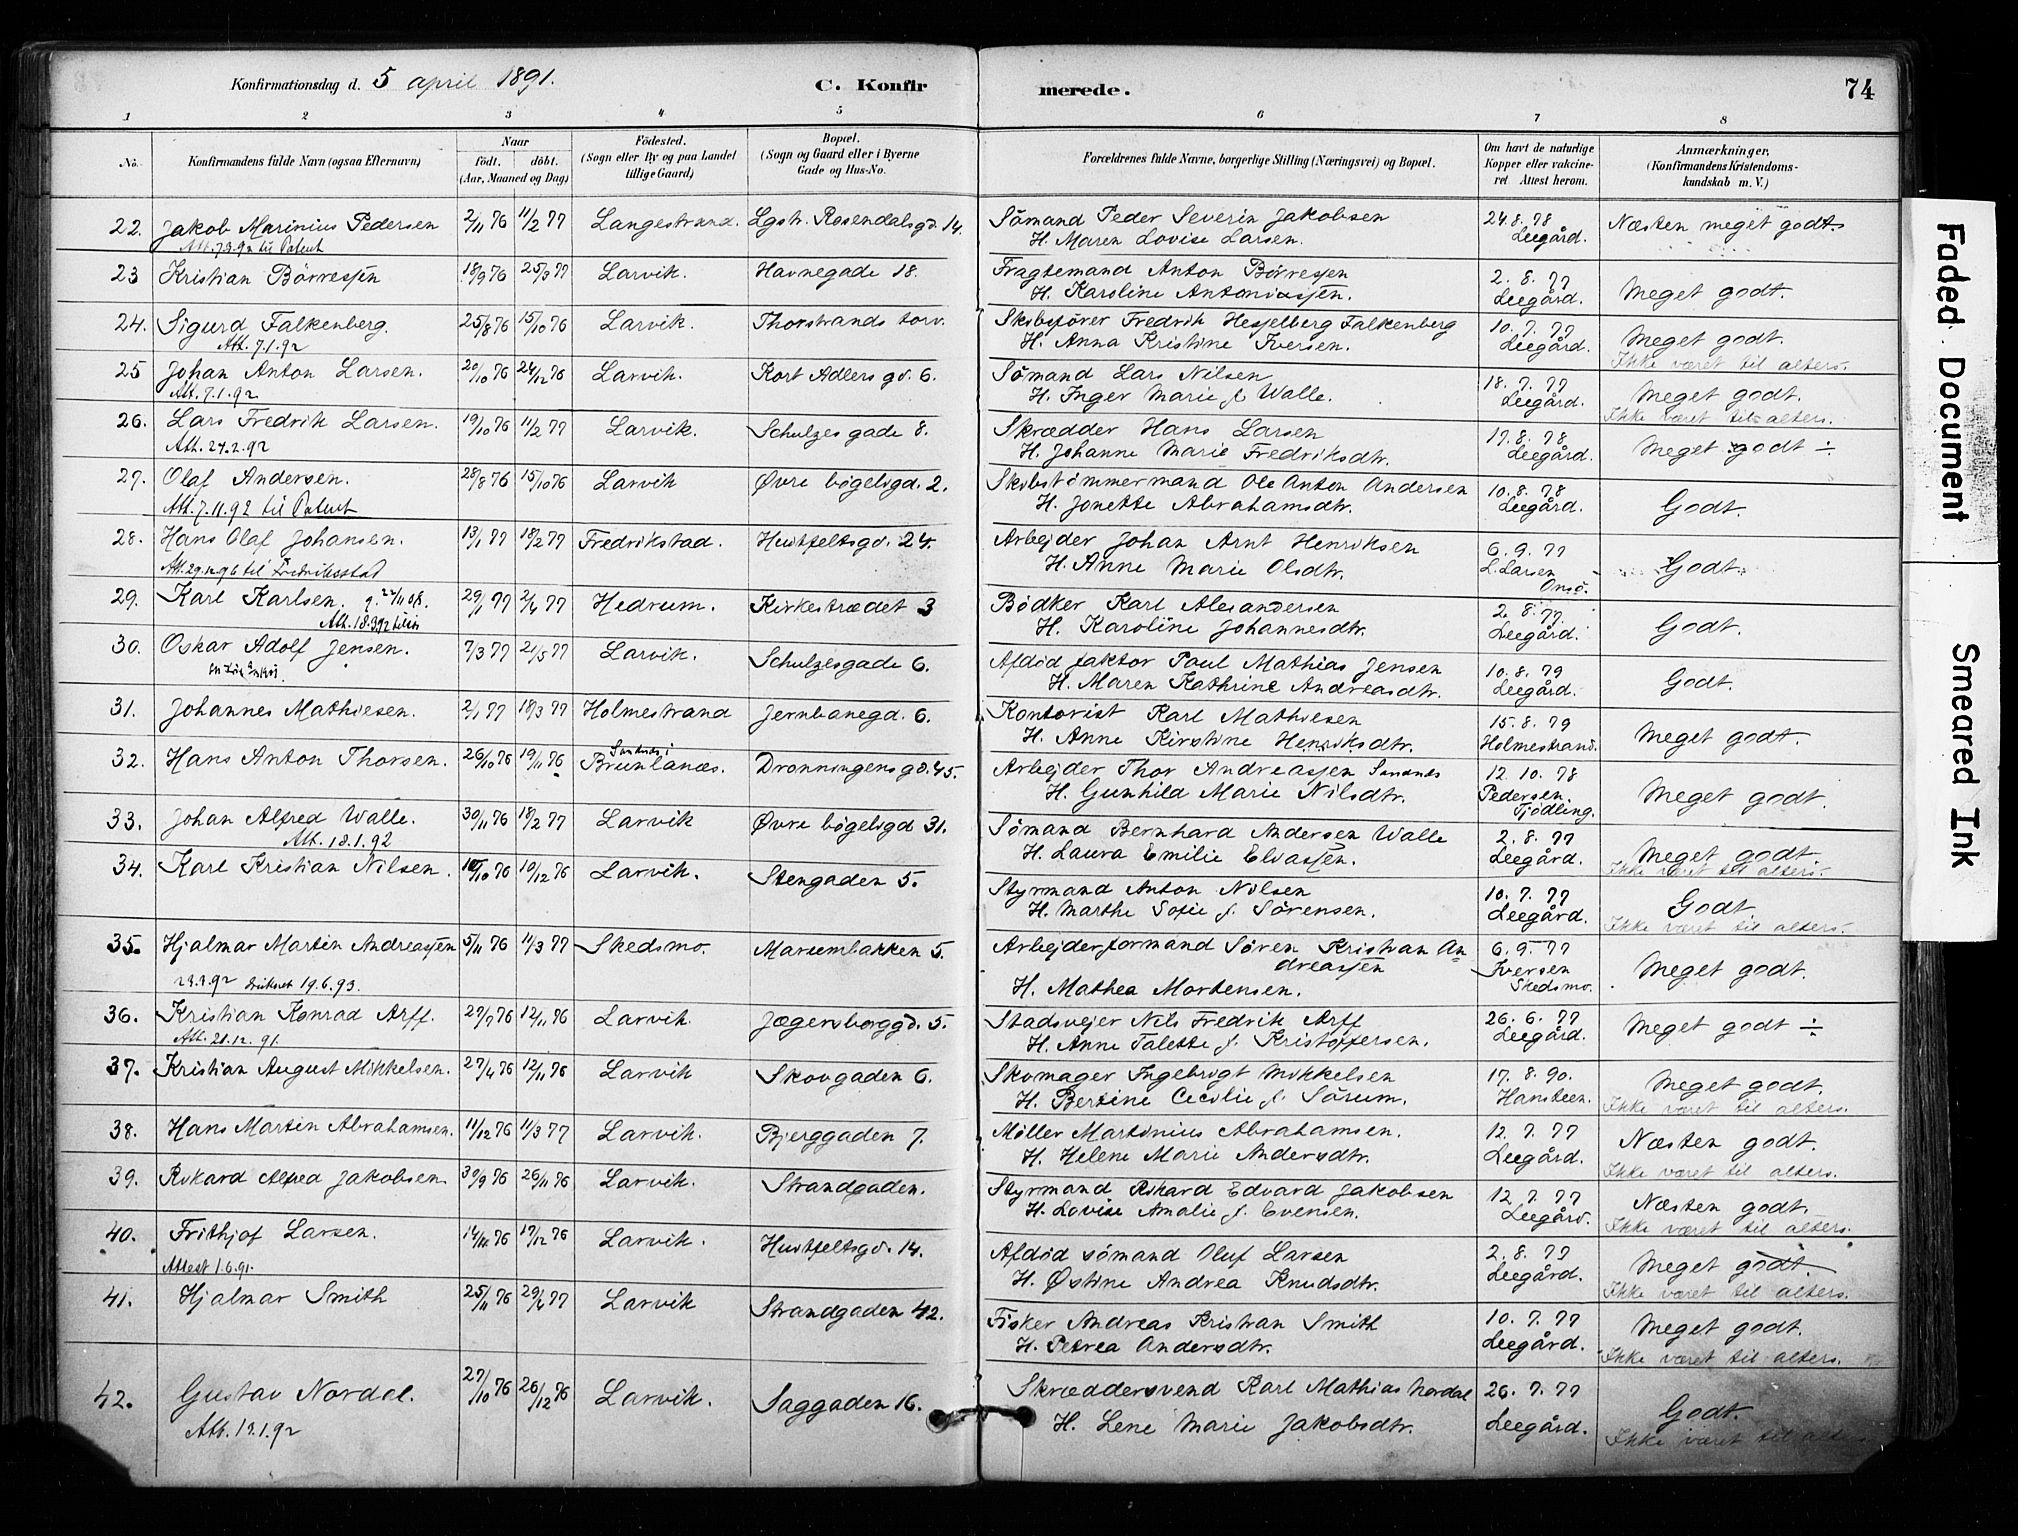 Konfirmationsdag d. 5 april 1891.
C. Konfirmerede.
74
1 2 3 4 5 6 7 8
No. Konfirmandens fulde Navn (ogsaa Efternavn) Naar födt. döbt. (Aar, Maaned og Dag) Födested. (Sogn eller By og paa Landet tillige Gaard) Bopæl. (Sogn og Gaard eller i Byerne Gade og Hus-No. Forældrenes fulde Navne, borgerlige Stilling (Næringsvei) og Bopæl. Om havt de naturlige Kopper eller vakcineret Attest herom. Anmærkninger, (Konfirmandens Kristendomskundskab m. V.)
22. Jakob Marinius Pedersen 2/11 76 11/2 77 Langestrand. Lgstr. Rosendalsgd. 14. Sömand Peder Severin Jakobsen 24.8.78 Næsten meget godt.
Att. 7.9.92 til Patent H. Maren Lovise Larsen. Leegård.
23 Kristian Börresen 18/9 76 25/3 77 Larvik. Havnegade 18. Fragtemand Anton Börresen 2.8.77 Meget godt.
H. Karoline Antoniassen. Leegård.
24. Sigurd Falkenberg. 25/8 76 15/10 76 Larvik. Thorstrands torv. Skibsförer Fredrik Hesselberg Falkenberg 10.7.77 Meget godt.
Att. 7.1.92 H. Anna Kristine Iversen. Leegård. Ikke været til alters.
25 Johan Anton Larsen. 20/10 76 26/12 76 Larvik. Kort Adlers gd. 6. Sömand Lars Nilsen 18.7.77 Meget godt.
Att. 7.1.92 H. Inger Marie f. Walle. Leegård. Ikke været til alters.
26. Lars Fredrik Larsen. 19/10 76 11/2 77 Larvik. Schulzes gade 8. Skrædder Hans Larsen 17.8.78 Meget godt ÷
Att. 27.2.92 H. Johanne Marie Fredriksdtr. Leegård.
27. Olaf Andersen. 28/8 76 15/10 76 Larvik Øvre bögeligd. 2. Skibstömmermand Ole Anton Andersen 10.8.78 Godt.
Att. 7.11.92 til Patent H. Jonette Abrahamsdtr. Leegård.
28. Hans Olaf Johansen. 13/1 77 18/2 77 Fredrikstad. Huitfeltsgd. 24. Arbejder Johan Arnt Henriksen 6.9.77 Godt.
Att. 29.12.96 til Fredriksstad H. Anne Marie Olsdtr. L. Larsen Onsö.
29. Karl Karlsen. 29/1 77 2/4 77 Hedrum. Kirkestrædet 3 Bödker Karl Alexandersen 2.8.77. Godt.
H. Karoline Johannesdtr. Leegård.
30. Oskar Adolf Jensen. 7/3 77 21/5 77 Larvik. Schulzesgade 6. Afdöd faktor Poul Mathias Jensen 10.8.79 Godt.
H. Maren Kathrine Andreasdtr. Leegård.
31. Johannes Mathiesen. 2/1 77 18/3 77 Holmestrand Jernbanegd. 6. Kontorist Karl Mathiesen 15.8.79 Meget godt.
H. Anne Kirstine Henriksdtr. Holmestrand.
32. Hans Anton Thorsen. 26/10 76 19/11 76 Sandnæs i Brunlanæs. Dronningens gd. 45. Arbejder Thor Andreassen Sandnæs 12.10.78 Meget godt.
H. Gunhild Marie Nilsdtr. Pedersen. Tjödling.
33. Johan Alfred Walle. 30/11 76 18/2 77 Larvik Øvre bögeligd 31. Sömand Bernhard Andersen Walle 2.8.77 Meget godt.
Att. 18.1.92 H. Laura Emilie Eliassen. Leegård. Ikke været til alters.
34. Karl Kristian Nilsen. 10/12 76 Larvik. Stengaden 5. Styrmand Anton Nilsen 10.7.77 Godt
H. Marthe Sofie f. Sörensen. Leegård. Ikke været til alters.
35. Hjalmar Martin Andreassen 5/11 76 11/3 77 Skedsmo. Mariumbakken 5. Arbejderformand Sören Kristian Andreassen 6.9.77 Meget godt.
19.6.93. H. Mathea Mortensen. Iversen Skedsmo.
36. Kristian Konrad Arff. 27/7 76 12/11 76 Larvik Jægersborggd. 5. Stadsvejer Nils Fredrik Arff 26.6.77 Meget godt ÷
Att. 21.12.91. H. Anne Talette f. Kristoffersen. Leegård.
37. Kristian August Mikkelsen. 27/4 76 12/11 76 Larvik Skovgaden 6. Skomager Ingebrigt Mikkelsen 17.8.90. Meget godt.
H. Bertine Cecilie f. Sörum. Hansteen. Ikke været til alters.
38. Hans Martin Abrahamsen. 11/12 76 11/3 77 Larvik. Bjerggaden 7. Möller Martinius Abrahamsen. 12.7.77 Næsten godt.
H. Helene Marie Andersdtr. Leegård. Ikke været til alters.
39. Rikard Alfred Jakobsen 30/9 76 26/11 76 Larvik. Strandgaden. Styrmand Rikard Edvard Jakobsen 12.7.77 Næsten godt.
H. Lovise Amalie f. Evensen. Leegård. Ikke været til alters.
40. Frithjof Larsen. 14/11 76 17/12 76 Larvik. Huitfeltsgd. 14. Afdöd sömand Oluf Larsen 2.8.77 Meget godt.
Attest 1.6.91. H. Østine Andrea Knudsdtr. Leegård. Ikke været til alters.
41. Hjalmar Smith 25/11 76 29/4 77 Larvik Strandgaden 42. Fisker Andreas Kristian Smith 10.7.77 Meget godt.
H. Petrea Andersdtr. Leegård. Ikke været til alters.
42. Gustav Nordal. 27/10 76 26/12 76 Larvik. Saggaden 16. Skræddersvend Karl Mathias Nordal 26.7.77 Godt.
Att. 13.1.92 H. Lene Marie Jakobsdtr. Leegård. Ikke været til alters
Faded Document
Smeared Ink